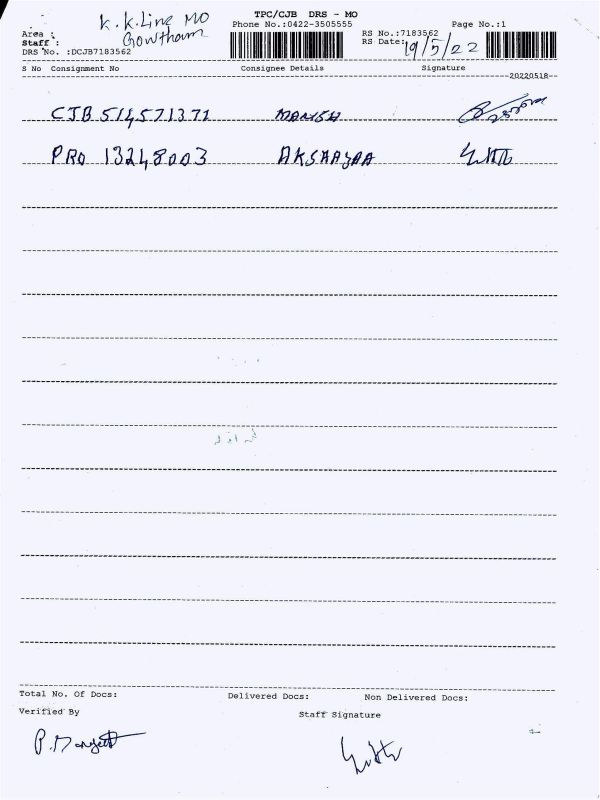 TPC/CJB DRS - MO
K.K.Line MO
Phone No.:0422-3505555
Page No.:1
Area :
RS No.:7183562
Staff : Gowtham
RS Date: 19/5/22
DRS No. :DCJB7183562
S No Consignment No Consignee Details Signature
20220518
CJB 514571371 MANISH
PRO 13248003 AKSAAYAA
Total No. Of Docs: Delivered Docs: Non Delivered Docs:
Verified By Staff Signature